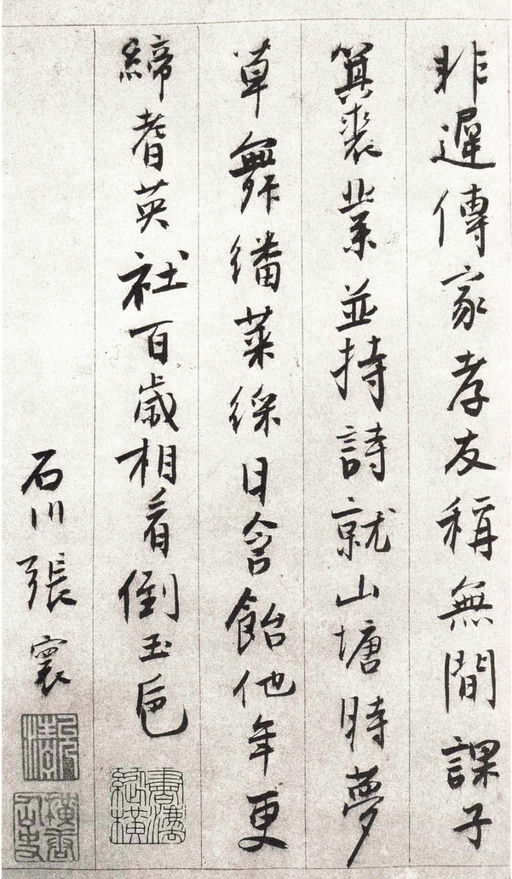 非遲傳家孝友稱無間課子
箕裘業並持詩就山塘時夢
草舞繙萊綵日含飴他年更
締耆英社百歲相看倒玉巵
石川張寰